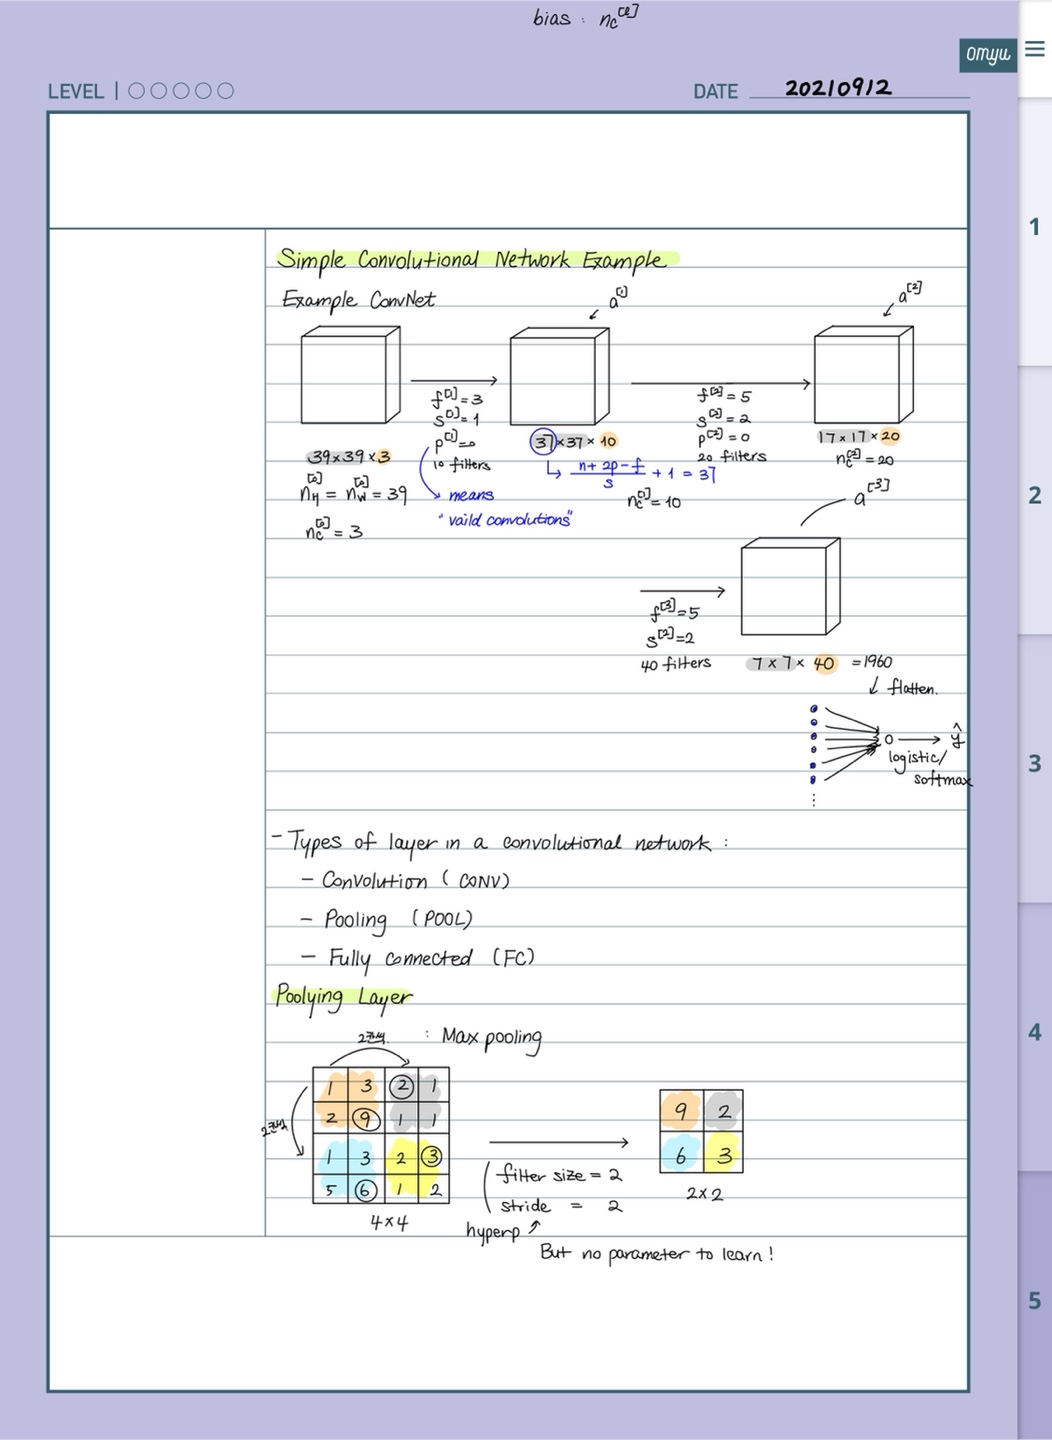 bias : nc[l]
omyu
LEVEL | ○○○○○
DATE 20210912
1
2
3
4
5
Simple Convolutional Network Example
Example ConvNet
a[1]
a[2]
f[1] = 3
s[1] = 1
p[1] = 0
10 filters
f[2] = 5
s[2] = 2
p[2] = 0
20 filters
39×39×3
nH[0] = nW[0] = 39
nc[0] = 3
means
"vaild convolutions"
37×37×10
n+2p-f / s + 1 = 37
nc[1] = 10
17×17×20
nc[2] = 20
a[3]
f[3]=5
s[2]=2
40 filters
7×7×40 = 1960
↓ flatten.
0 → ŷ
logistic/
softmax
⋮
- Types of layer in a convolutional network :
- Convolution (CONV)
- Pooling (POOL)
- Fully connected (FC)
Poolying Layer
: Max pooling
2칸씩.
2칸씩
1 3 2 1
2 9 1 1
1 3 2 3
5 6 1 2
4×4
filter size = 2
stride = 2
hyperp ↗
9 2
6 3
2×2
But no parameter to learn!